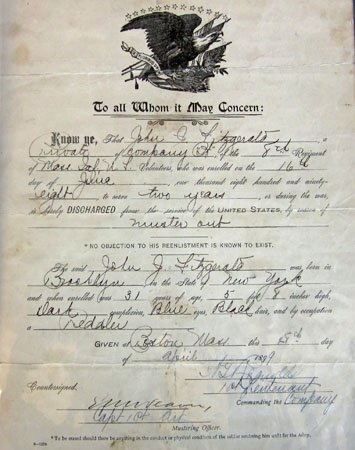 To all Whom it May Concern:
Know ye, That John J. Fitzgerald a
Private of Company of the 8th Regiment
of Mass Inf. U. S. Volunteers, who was enrolled on the 16th
day of June, one thousand eight hundred and ninety-
eight to serve two years or during the war,
is hereby DISCHARGED from the service of the UNITED STATES, by reason of
muster out
* NO OBJECTION TO HIS REENLISTMENT IS KNOWN TO EXIST.
The said John J. Fitzgerald was born in
Brooklyn in the State of New York
and when enrolled was 31 years of age, 5 feet 8 inches high,
Dark complexion, Blue eyes, Black hair, and by occupation
a Peddler
GIVEN at Boston Mass. this day
of April 1899
1st Lieutenant
Commanding the Company
Countersigned.
Capt 1st Art
Mustering Officer.
*To be erased should there be anything in the conduct or physical condition of the soldier rendering him unfit for the Army.